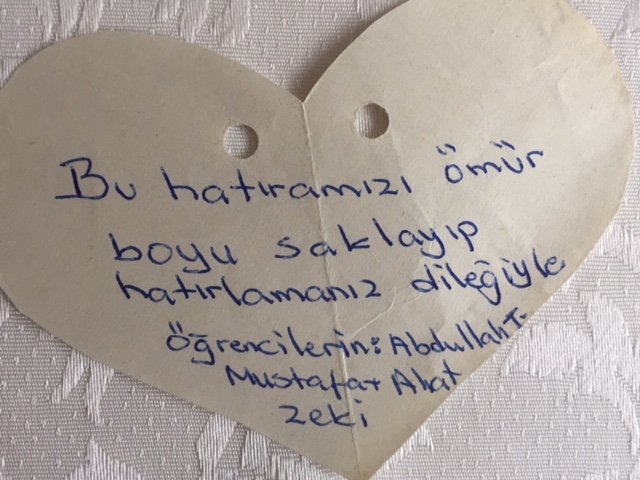 Bu hatıramızı ömür
boyu saklayıp
hatırlamanız dileğiyle
Öğrencilerin: Abdullah T.
Mustafa + Alat
Zeki